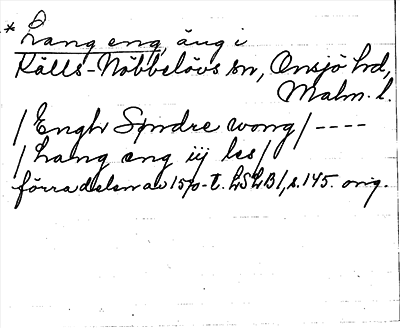 * Lang eng, äng i
Källs-Nöbbelövs sn, Onsjö hd,
Malm. l.
/ Engh Søndre wong / ----
/ Lang eng iij les /
förra delen av 15[?]0-t. LSLB 1, s. 145. orig.